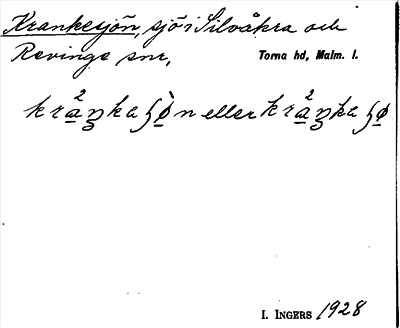 Krankesjön, sjö i Silvåkra och
Revinge snr, Torna hd, Malm. l.
kra²ŋka ʃø̀n eller kra²ŋka ʃø
I. INGERS 1928